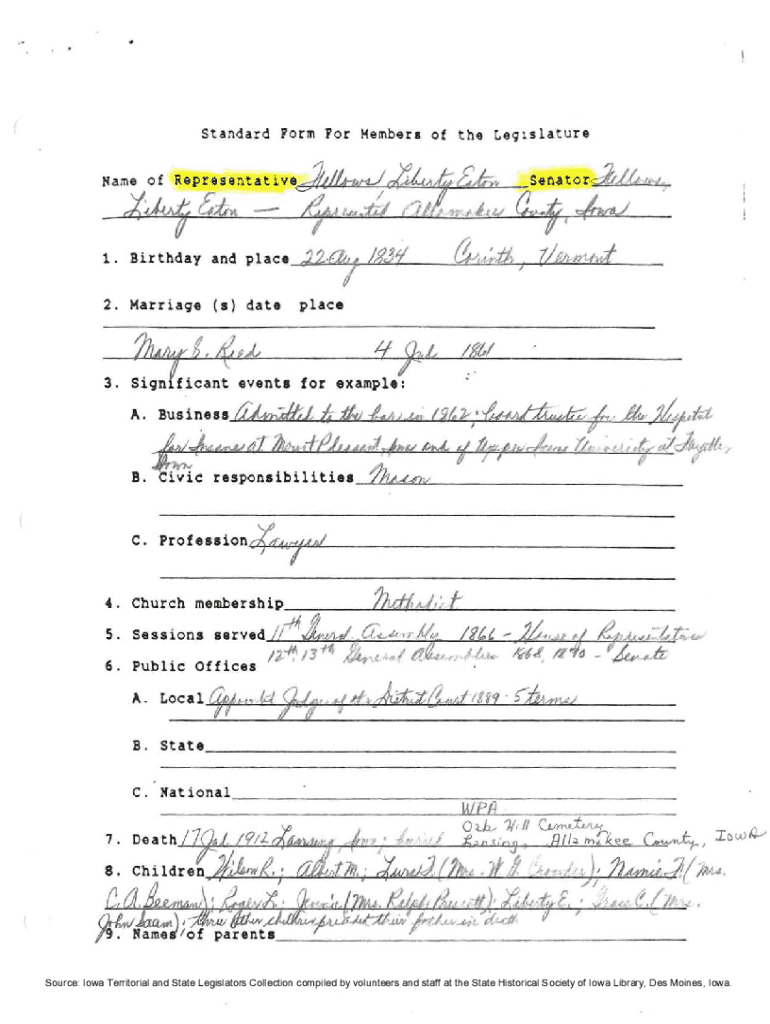 Standard Form For Members of the Legislature
Name of Representative Fellows Liberty Eaton Senator Fellows,
Liberty Eaton — Represented Allamakee County, Iowa
1. Birthday and place 22 Aug 1834 Corinth, Vermont
2. Marriage (s) date place
Mary S. Reed 4 Jul 1861
3. Significant events for example:
A. Business Admitted to the bar in 1862; board trustee for the Hospital
for Insane at Mount Pleasant, Iowa and of Upper Iowa University at Fayette,
Iowa
B. Civic responsibilities Mason
C. Profession Lawyer
4. Church membership Methodist
5. Sessions served 11th General Assembly 1866 - House of Representatives
12th, 13th General Assemblies 1868, 1870 - Senate
6. Public Offices
A. Local Appointed Judge of the District Court 1889 - 5 terms
B. State
C. National
WPA
Oak Hill Cemetery
7. Death 17 Jul 1912 Lansing, Iowa; buried Lansing, Allamakee County, IOWA
8. Children Wilson R.; Albert M.; Lura F. (Mrs. W. G. Crowder); Namie F. (Mrs.
C. A. Beeman); Roger L.; Jennie (Mrs. Ralph Prescott); Liberty E.; Grace C. (Mrs.
John Saam); three other children preceded their father in death
9. Names of parents
Source: Iowa Territorial and State Legislators Collection compiled by volunteers and staff at the State Historical Society of Iowa Library, Des Moines, Iowa.